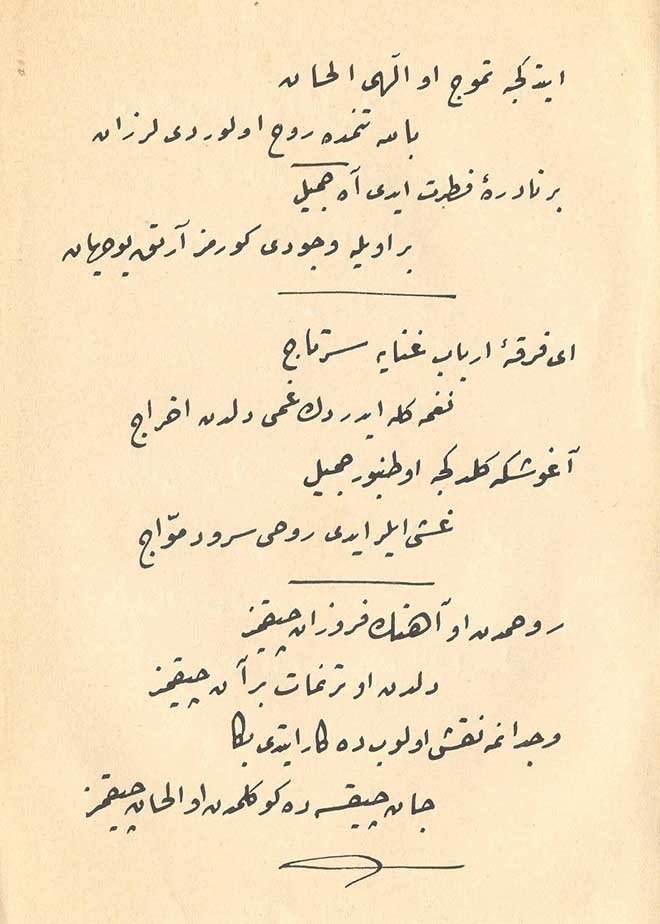 ايتدكجه تموج او الٓهى الحان
باسه تنمده روح اولوردى لرزان
بر نادرهٔ فطرت ايدى آه جميل
بر اويله وجودى كورمز آرتق بو جهان
اى فرقهٔ ارباب غنايه سرتاج
نغمه كله ايدردك غمى دلدن اخراج
آغوشكه كلدكجه او طنبور جميل
غشى ايلر ايدى روحى سرود موّاج
روحمدن او آهنك فروزان چيقمز
دلدن او ترنمات بر آن چيقمز
وجدانمه نقش اولوب ده كار ايتدى بكا
جان چيقسه ده كوكلمدن او الحان چيقمز